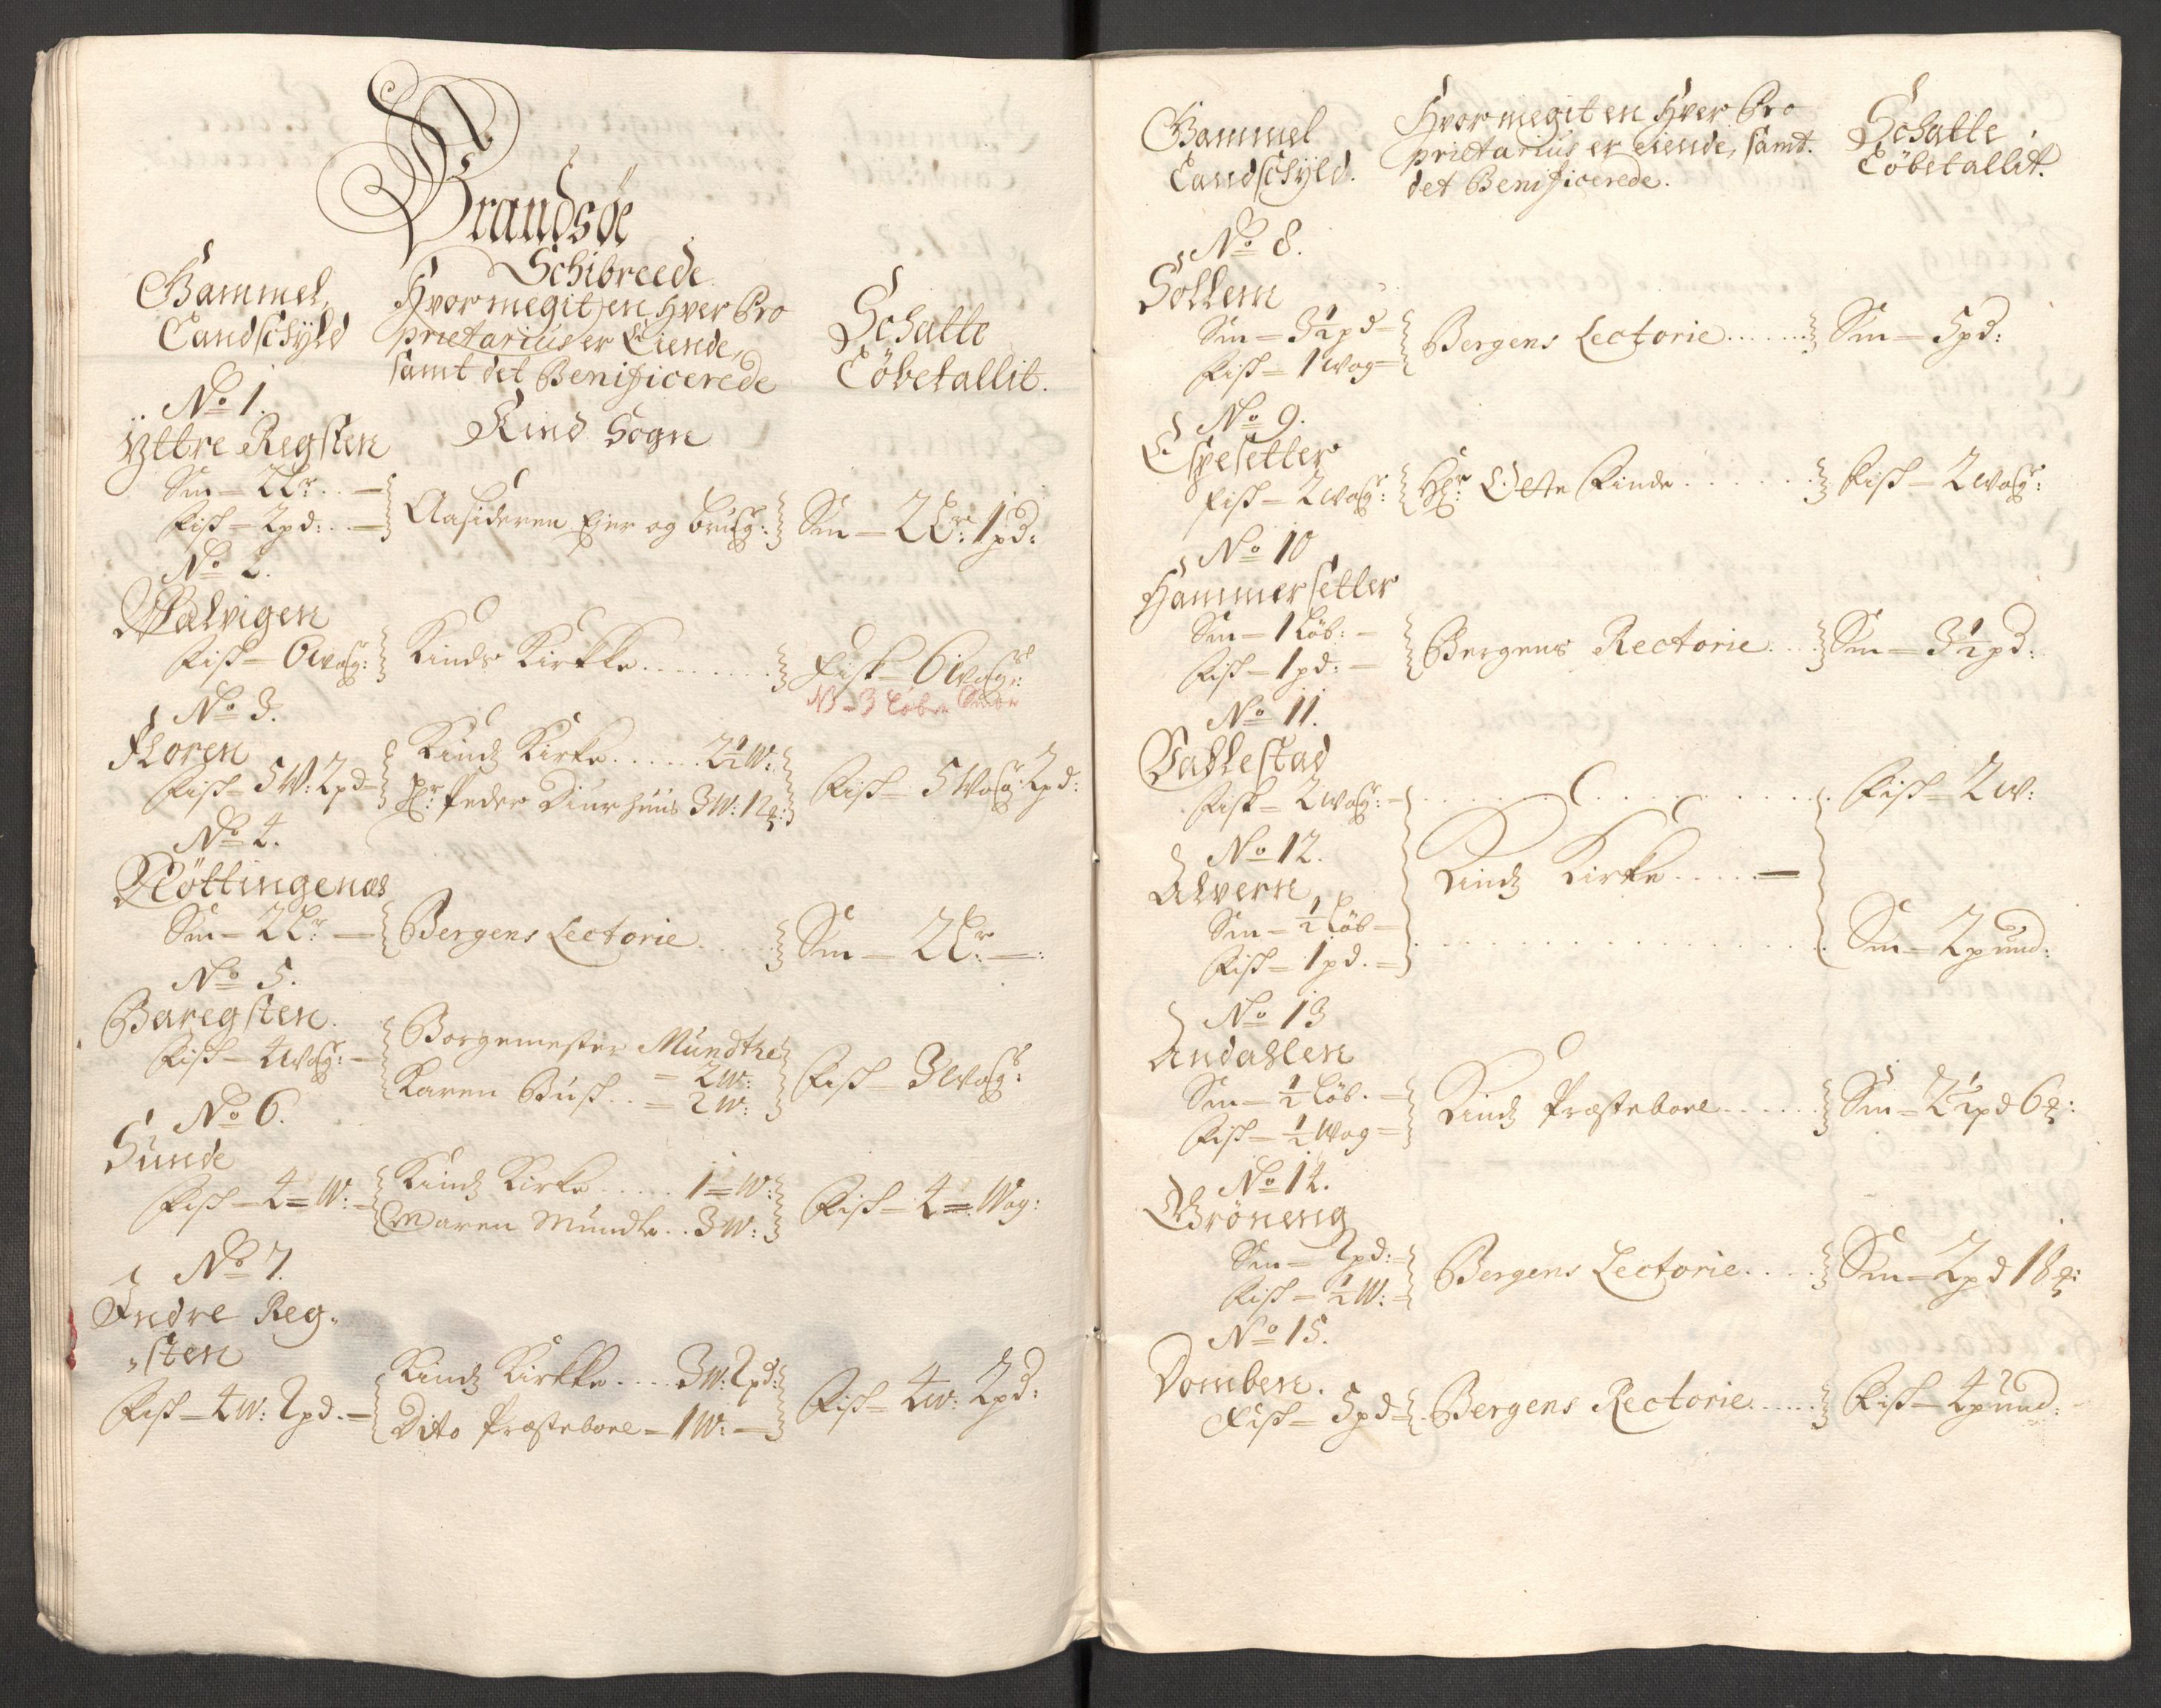 Brandsøe
Schibreede
Gammel
Landschyld
Hvor megit en Hver Pro
prietarius er Eiende,
samt det Benificerede
Schatte
Löbetallit.
Kind Sogn
No 1.
Yttre Regsten
Sm — 2 Lr. —
Fisk — 2 pd: —
Aasideren Ejer og brug:
Sm — 2 Lr: 1 pd:
No 2.
Fisk — 6 wogr:
Kinds Kirkke
Fisk — 6 wogr:
NB 3 Løber Smør
No 3.
Floren
Fisk — 5 W: 2 pd
Kindz Kirke 2 1/2 W:
Hr: Peder Diurhuus 3 W: 12
Fisk — 5 Wogr 2 pd:
No 4.
Nöttingenæs
Sm — 2 Lr: —
Bergens Lectorie
Sm — 2 Lr: —:
No 5.
Baregsten
Fisk — 4 wogr: —
Borgemester Mundthe
= 2 W:
Karen Busk = 2 W:
Fisk — 3 wogr:
No 6.
Sunde
Fisk — 4 = W: —
Kindz Kirke 1 = W:
Maren Mundte 3 W:
Fisk — 4 = Wog:
No 7.
Indre Reg-
sten
Fisk — 4 W: 2 pd. —
Kindz Kirkke 3 W: 2 pd:
Dito Præstebole — 1 W: —
Fisk — 4 W: 2 pd:
Gammel
Landschyld.
Hvor megit en Hver Pro
prietarius er eiende, samt
det Benificerede.
Schatte
Löbetallit.
No 8.
Sollem
Sm — 3 1/2 pd
Fisk — 1 wog
Bergens Lectorie
Sm — 5 pd:
No 9.
Espesetter
Fisk — 2 wogr:
Hr: Otte Kinde
Fisk — 2 wogr:
No 10
Hammersetter
Sm — 1 Löb: —
Fisk — 1 pd: —
Bergens Rectorie
Sm — 3 1/2 pd:
No 11.
Fisk — 2 wogr:
Fisk — 2 W:
No 12.
Alvern
Sm — 1/2 Löb —
Fisk — 1 pd. —
Kindz Kirke —
Sm — 2 pund:
No 13
Andahlen
Sm — 1/2 Löb. —
Fisk — 1/2 Wog —
Kindz Præstebole
Sm — 2 1/2 pd 6
No 14.
Gröneng
Sm — 2 pd: —
Fisk — 1/2 W: —
Bergens Lectorie
Sm — 2 pd 18
No 15.
Domben.
Fisk — 5 pd
Bergens Rectorie
Fisk — 4 pund: